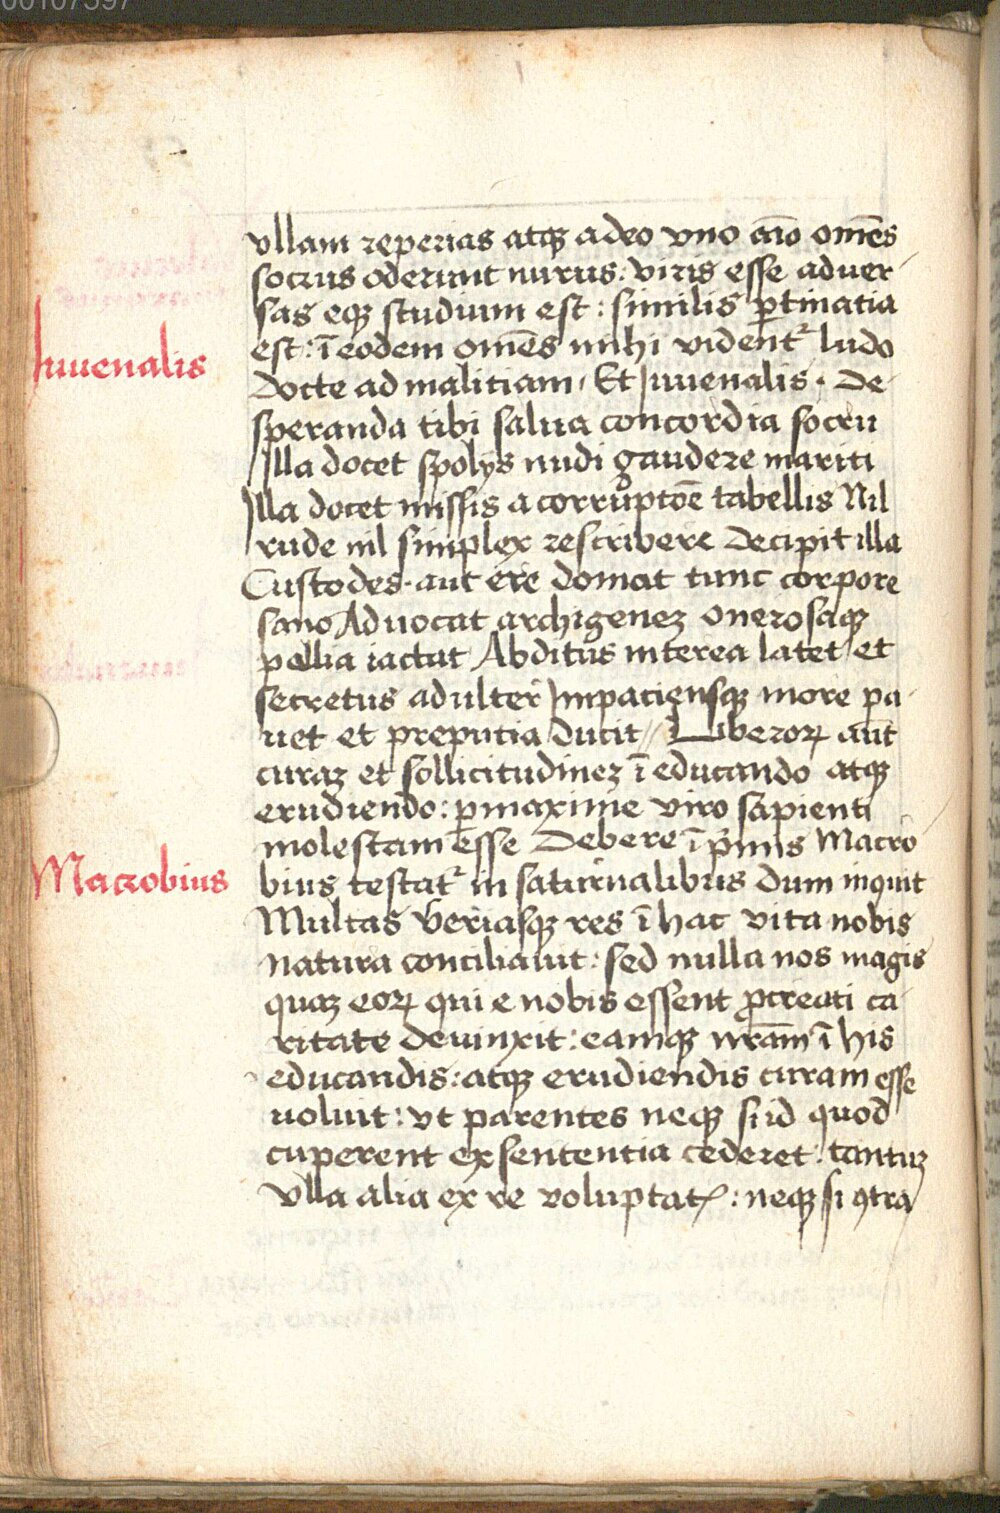 00107597
vllam reperias atqꝫ adeo vno aīo omēs
socrus oderunt nurus: viris esse aduer-
sas eqꝫ studium est: similis ꝑtinatia
Iuuenalis
est: ī eodem omēs mihi videntᷣ ludo
docte ad malitiam / Et Iuuenalis · De-
speranda tibi salua concordia socru
Illa docet spolijs nudi gaudere mariti
Illa docet missis a corruptoē tabellis Nil
rude nil simplex rescribere Decipit illa
Custodes · aut ere domat tunc corpore
sano Aduocat archigeneꝫ onerosaqꝫ
pallia iactat Abditus interea latet et
secretus adulter Impatiensqꝫ more pa-
uet et preputia ducit // Liberoꝝ aūt
curaꝫ et sollicitudineꝫ ī educando atqꝫ
erudiendo: ꝑmaxime viro sapienti
molestam esse Debere ī pͥmis Macro-
Macrobius
bius testatᷣ in saturnalibus dum inquit
Multas v̄eriasqꝫ res ī hac vita nobis
natura conciliauit: sed nulla nos magis
quaꝫ eoꝝ qui e nobis essent ꝓcreati ca-
ritate deuinxit: eamqꝫ nr̄am ī his
educandis: atqꝫ erudiendis curam esse
uoluit: vt parentes neqꝫ si id quod
cuperent ex sententia cederet: tantuꝫ
Vlla alia ex re voluptatꝭ: neqꝫ si ꝯtra